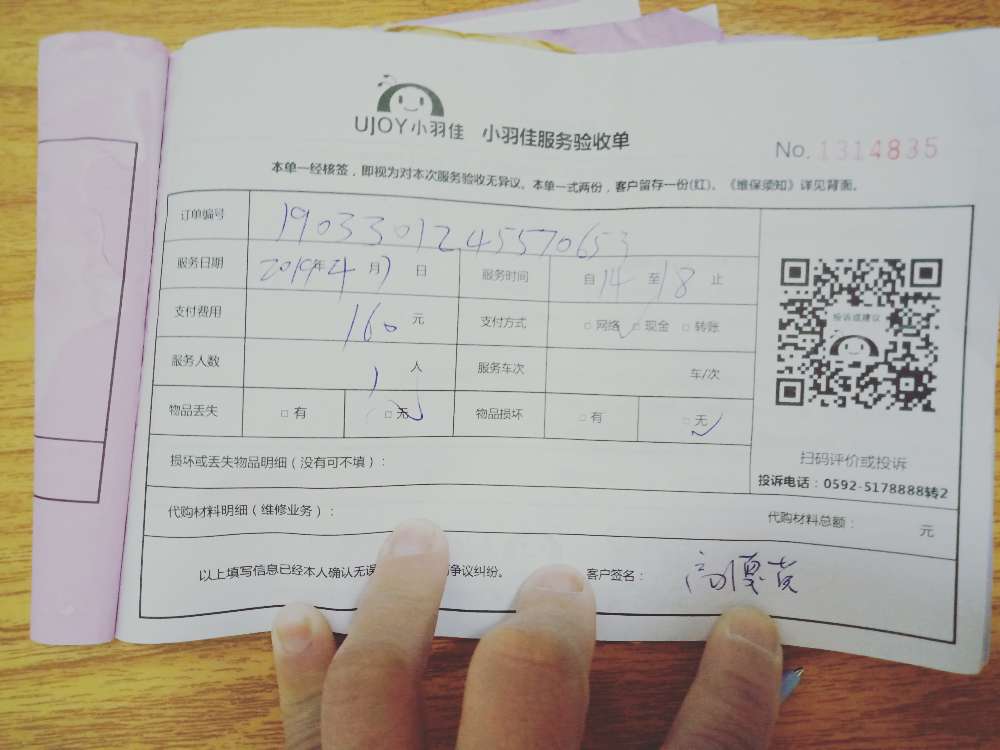 UJOY小羽佳 小羽佳服务验收单
No. 1314835
本单一经核签，即视为对本次服务验收无异议。本单一式两份，客户留存一份(红)。《维保须知》详见背面。
订单编号 1903301245570653
服务日期 2019年4月7日 服务时间 自14至18止
支付费用 160元 支付方式 □网络 ✓ □现金 □转账
服务人数 1人 服务车次 车/次
物品丢失 □有 □无 ✓ 物品损坏 □有 □无 ✓
投诉或建议
扫码评价或投诉
投诉电话：0592-5178888转2
损坏或丢失物品明细（没有可不填）：
代购材料明细（维修业务）： 代购材料总额： 元
以上填写信息已经本人确认无误 争议纠纷。 客户签名： 高